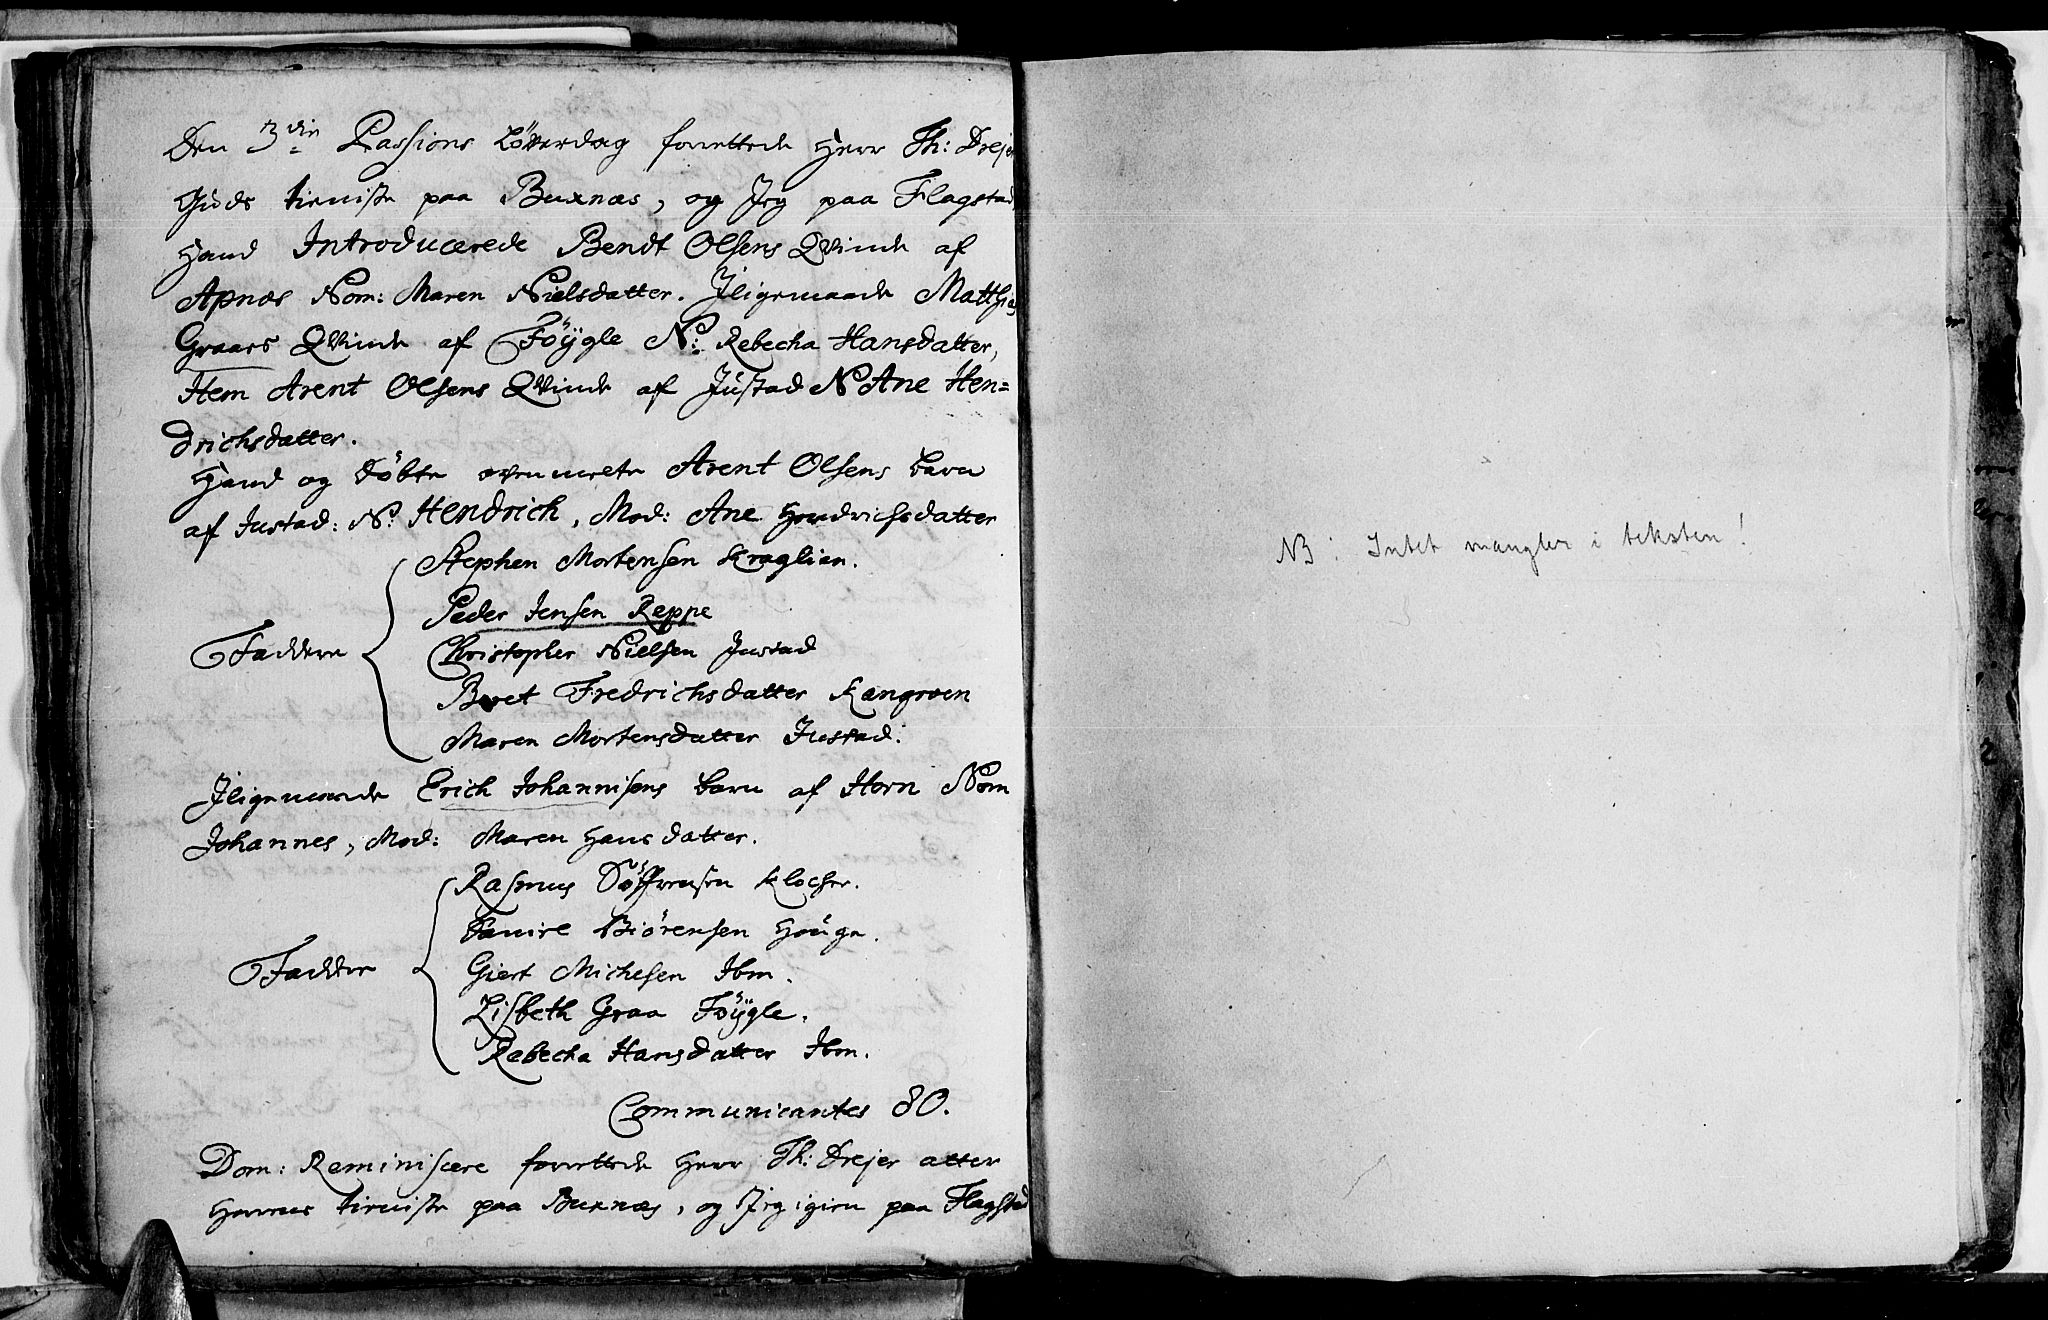 Den 3die Passions Löverdag forrettede Herr Th: Drejer
Guds tieniste paa Buxnæs, og Jeg paa Flagstad,
Hand Introducerede Bendt Olsens Qvinde af
Apnæs Nom: Maren Nielsdatter. Jligemaade Matthias
Graars Qvinde af Föÿgle N: Rebecha Hansdatter,
Item Arent Olsens Qvinde af Justad N Ane Hen=
drichsdatter.
Hand og döbte Arent Olsens barn
af Justad: N: Hendrich, Mod: Ane Hendrichsdatter
Faddere
Stephen Mortensen Kraglien.
Peder Jensen Reppe
Christopher Nielsen Justad
Beret Fredrichsdatter Kangroen
Maren Mortensdatter Justad:
Jligemaade Erich Johannisens barn af Horn Nom
Johannes, Mod: Maren Hansdatter.
Faddere
Rasmus Söffrensen Klocher.
Biörensen Houge.
Giert Michelsen Ibm.
Lisbeth Graa Föÿgle.
Rebecha Hansdatter Ibm.
Communicantes 80.
Dom: Reminiscere forrettede Herr Th: Drejer atter
Herrens tieniste paa Buxnæs, og Jeg igien paa Flagstad
NB: Intet mangler i teksten!